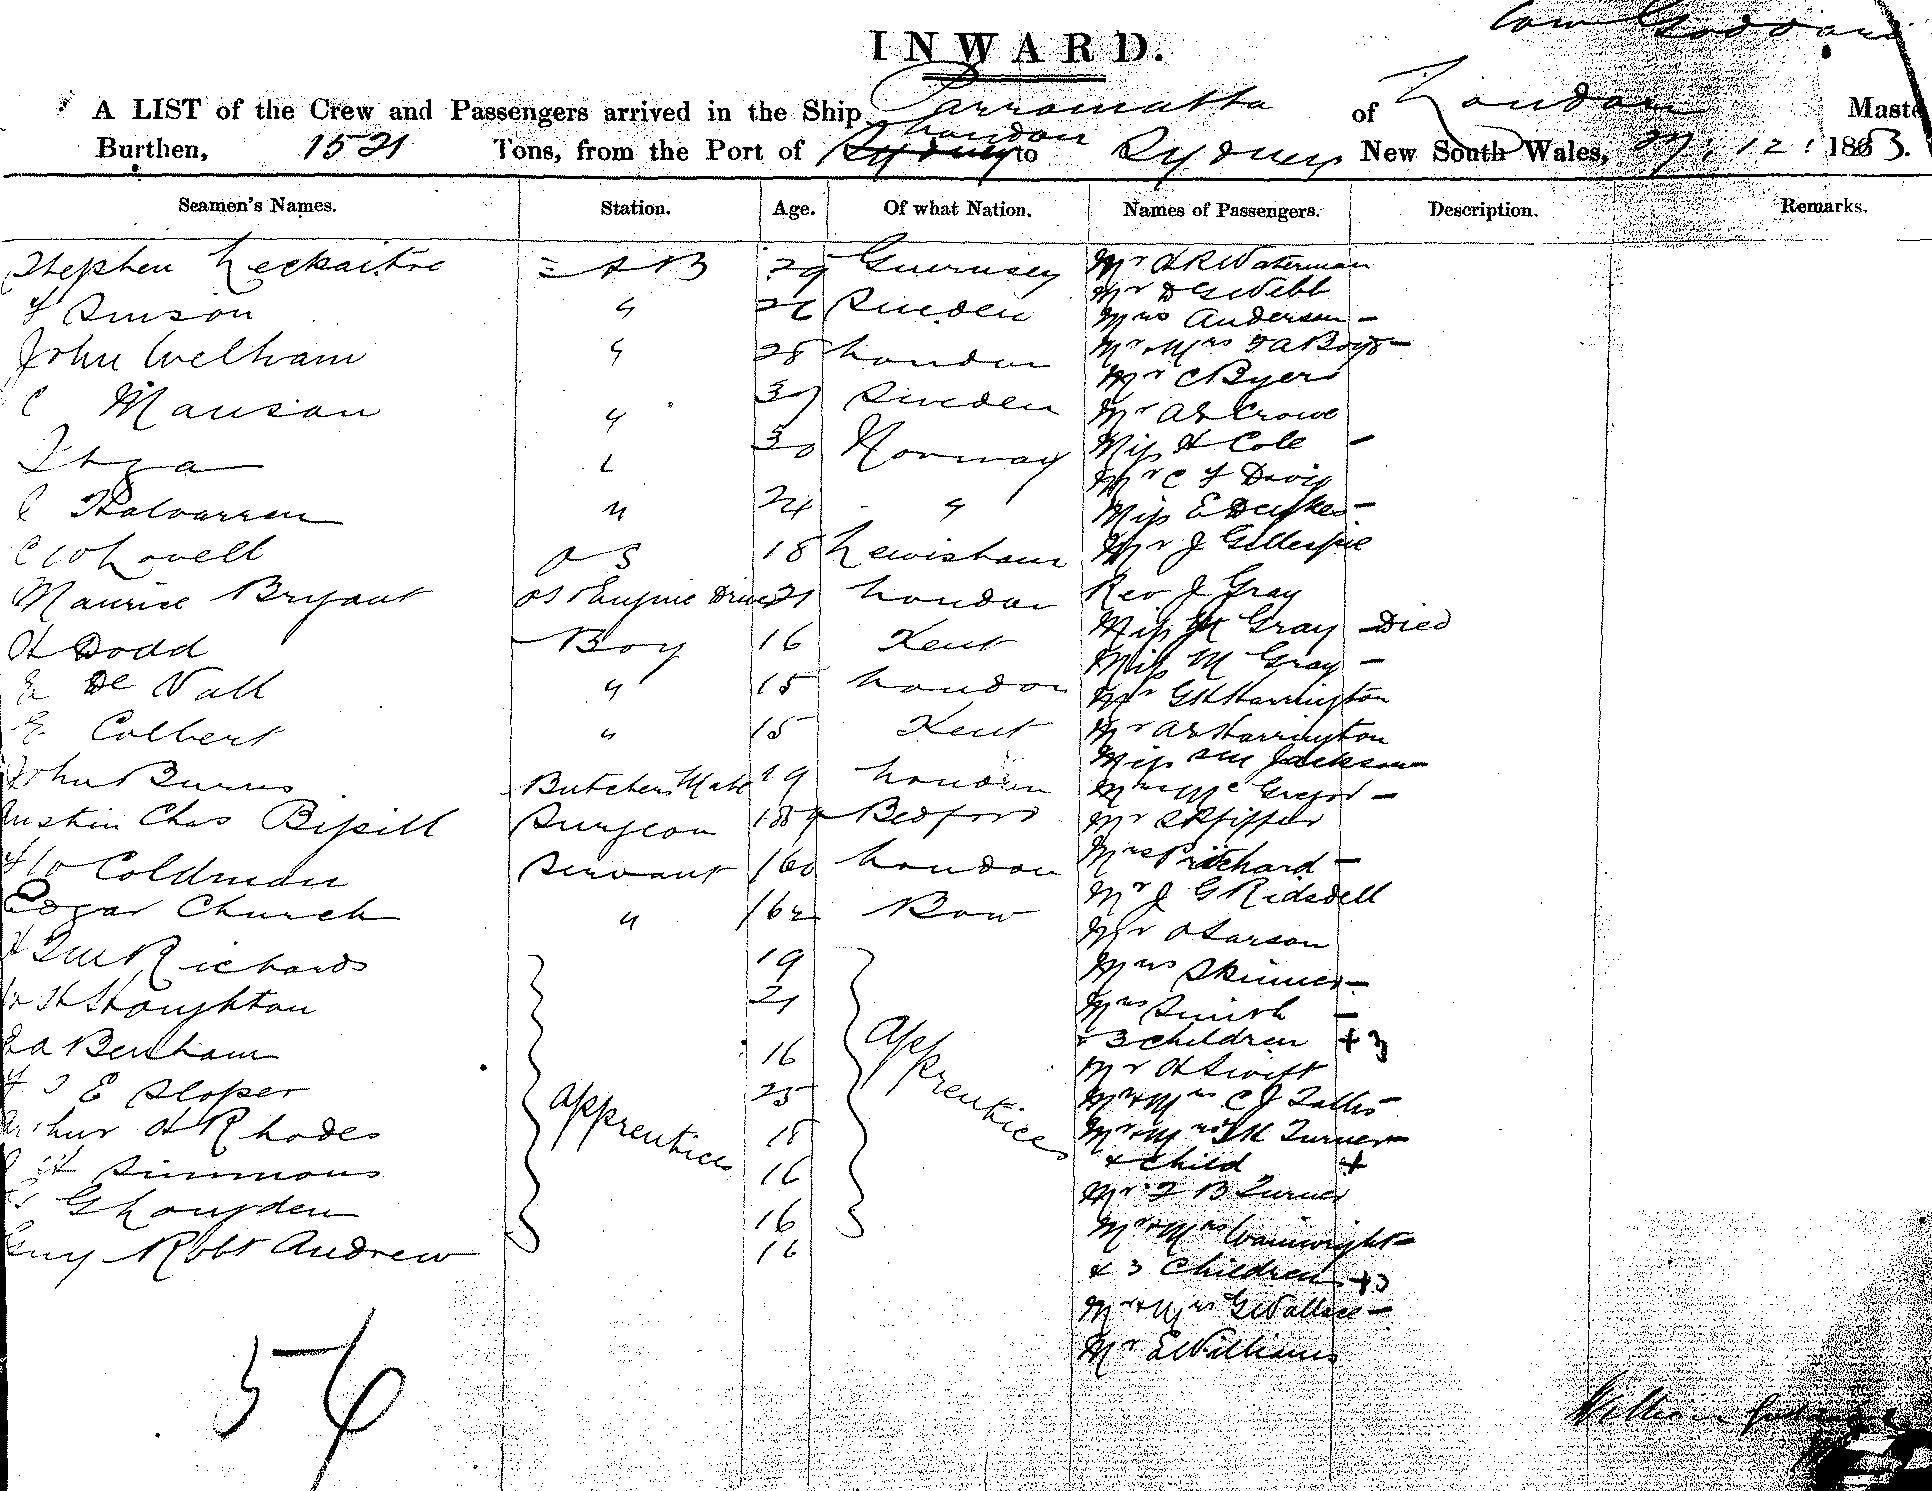 INWARD.
A LIST of the Crew and Passengers arrived in the Ship Parramatta of London Maste
Burthen, 1521 Tons, from the Port of London Sydney to Sydney New South Wales, 12 : 1883.
Seamen's Names. Station. Age. Of what Nation. Names of Passengers. Description. Remarks.
Stephen A B 29 Guernsey Mr H R Waterman
Mr D G Webb
Sinson " 26 Sweden Mrs Anderson -
John Welham " 28 London Mr & Mrs F A Boys -
Mr C Byers
C Manson " 30 Sweden Mr A E Crowe
30 Norway Miss H Cole -
Mr C F Davis
C " 24 " Miss E -
C W Lovell O S 18 Lewisham Mr J Gillespie
Maurice Bryant OS & Engine Driver 21 London Rev J Gray
Miss Gray - Died
H Dodd Boy 16 Kent Miss M Gray -
E De Vall " 15 London Mr G H Harrington
E Colbert " 15 Kent Mr A E Harrington
Miss M Jackson -
John Burns Butchers Mate 19 London Mrs McGregor -
Austin Chas Bissill Surgeon Bedford Mr S Pfiffer
Coldman Servant London Mrs Pritchard -
Mr J G Ridsdell
Edgar Church " Bow Mr O Larson
Richards 19 Mrs Skinner -
W H Houghton 21 Mrs Smith -
& 3 children + 3
A Benham 16 Apprentices Mr H Swift
E Sloper 25 Apprentices Mr & Mrs C J Tallis -
Arthur H Rhodes 18 Mr & Mrs Turner -
& child +
H Simmons 16 Mr F B Turner
G Lougden 16 Mr & Mrs Wainwright -
Guy Robt Andrew 16 & 3 Children + 3
Mr & Mrs G Wallace -
Mr E Williams
56
William